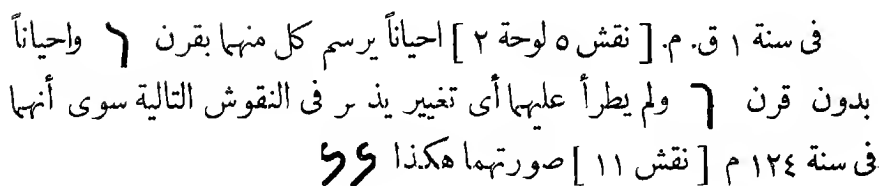 فى سنة ١ ق. م. [ نقش ٥ لوحة ٢ ] احياناً يرسم كل منهما بقرن واحياناً
بدون قرن ولم يطرأ عليهما أى تغيير يذ ـر فى النقوش التالية سوى أنهما
فى سنة ١٢٤ م [ نقش ١١ ] صورتهما هكذا